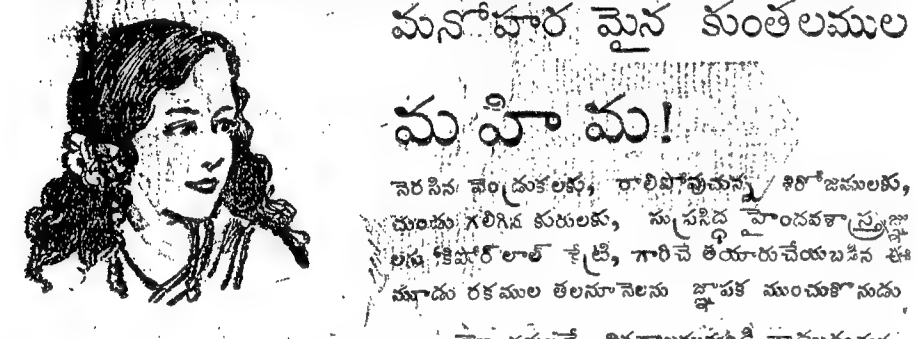 మనోహర మైన కుంతలముల
మహిమ!
నెరసిన వెండ్రుకలకు, రాలిపోవుచున్న శిరోజములకు,
చుండు గలిగిన కురులకు, సుప్రసిద్ధ హైందవశాస్త్రజ్ఞు
లను కిషోర్ లాల్ క్షేత్రి, గారిచే తయారుచేయబడిన ఈ
మూడు రకముల తలనూనెలను జ్ఞాపక ముంచుకొనుడు